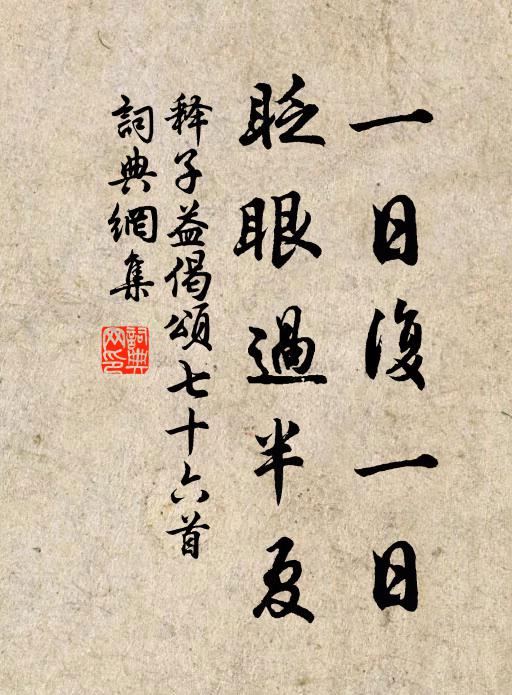 一日復一日
眨眼過半夏
释子益偈頌七十六首
詞典網集
詞典网印